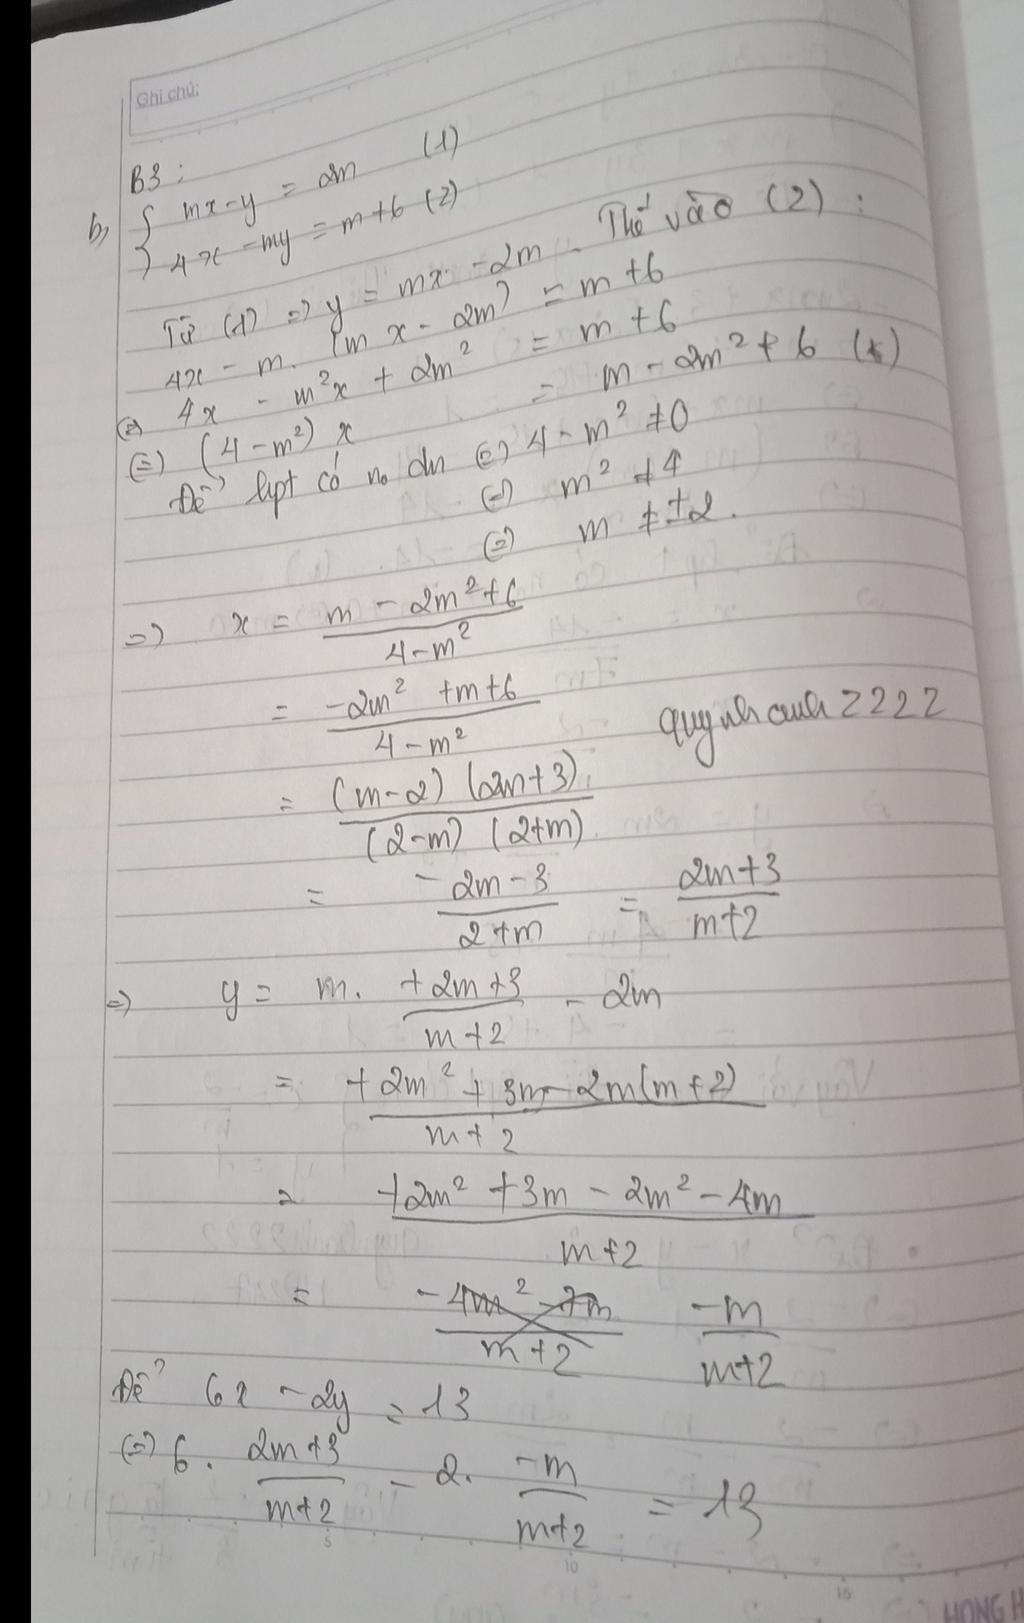 Ghi chú:
B3:
b, { mx-y = 2m (1)
4x - my = m+6 (2)
Từ (1) => y = mx - 2m. Thế vào (2):
4x - m. (mx - 2m) = m+6
(=) 4x - m²x + 2m² = m+6
(=) (4-m²) x = m - 2m² + 6 (*)
Để hpt có n₀ dn (=) 4-m² ≠ 0
(=) m² ≠ 4
(=) m ≠ ±2.
=> x = (m - 2m² + 6)/(4-m²)
= (-2m² + m + 6)/(4-m²)
quynhanh2222
= (m-2) (2m+3)/(2-m) (2+m)
= (-2m-3)/(2+m) = (2m+3)/(m+2)
=> y = m. (+2m+3)/(m+2) - 2m
= (+2m² + 3m - 2m(m+2))/(m+2)
= (+2m² + 3m - 2m² - 4m)/(m+2)
= (-4m² - 7m)/(m+2) -m/(m+2)
Để 6x - 2y = 13
(=) 6. (2m+3)/(m+2) - 2. -m/(m+2) = 13
5
10
15
HONG H